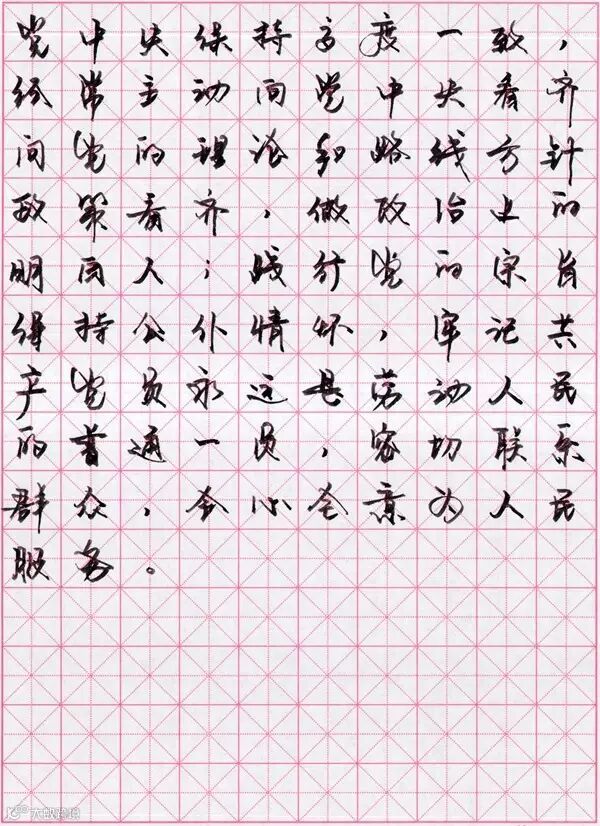 党中央保持高度一致，
经常主动向党中央看齐
向党的理论和路线方针
政策看齐，做政治上的
明白人；践行党的宗旨
保持公仆情怀，牢记共
产党员永远是劳动人民
的普通一员，密切联系
群众，全心全意为人民
服务。
大蚁跨境